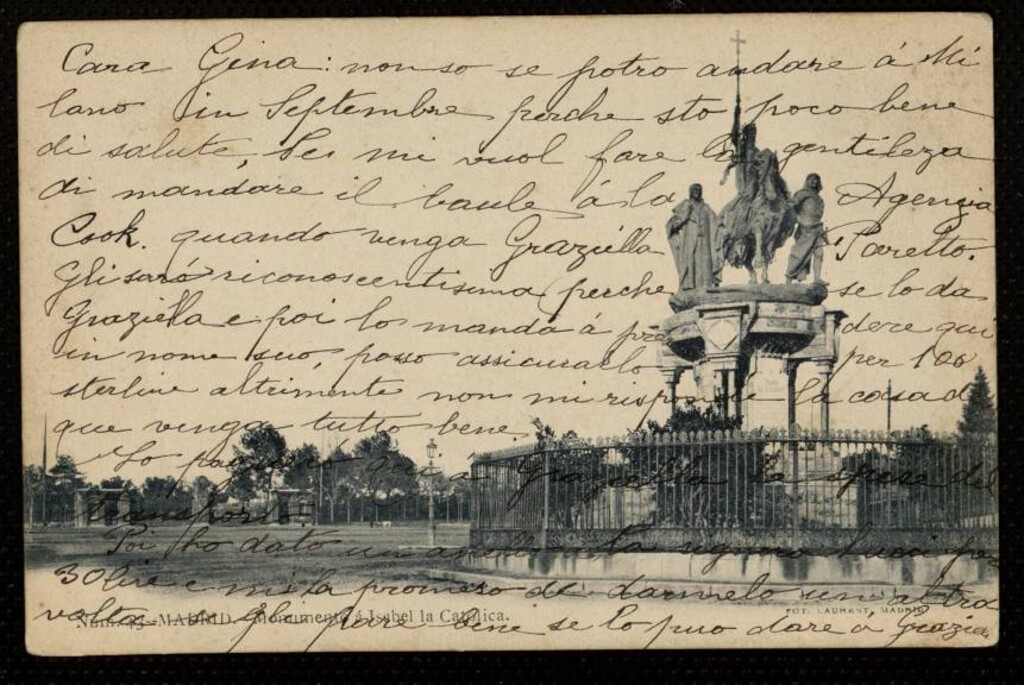 Cara Gina: non so se potro andare á Mi
lano in Septembre perche sto poco bene
di salute, Lei mi vuol fare la gentileza
di mandare il baule á la Agenzia
Cook. quando venga Graziella Paretto.
gli saró riconoscentisima (perche se lo da
Graziella e poi lo manda á pre dere qui
in nome suo, posso assicurarlo per 100
sterline altrimente non mi risponde la casa d
que venga tutto bene.
Io pagaro qui á Graziella la spesa del
transporto.
Poi ho dato un anello la signora Luca per
30 lire e mi la promeso de darmelo un altra
volta gli pare bene se lo puo dare á Grazie.
FOT. LAURENT, MADRID
MADRID. Monumento á Isabel la Católica.